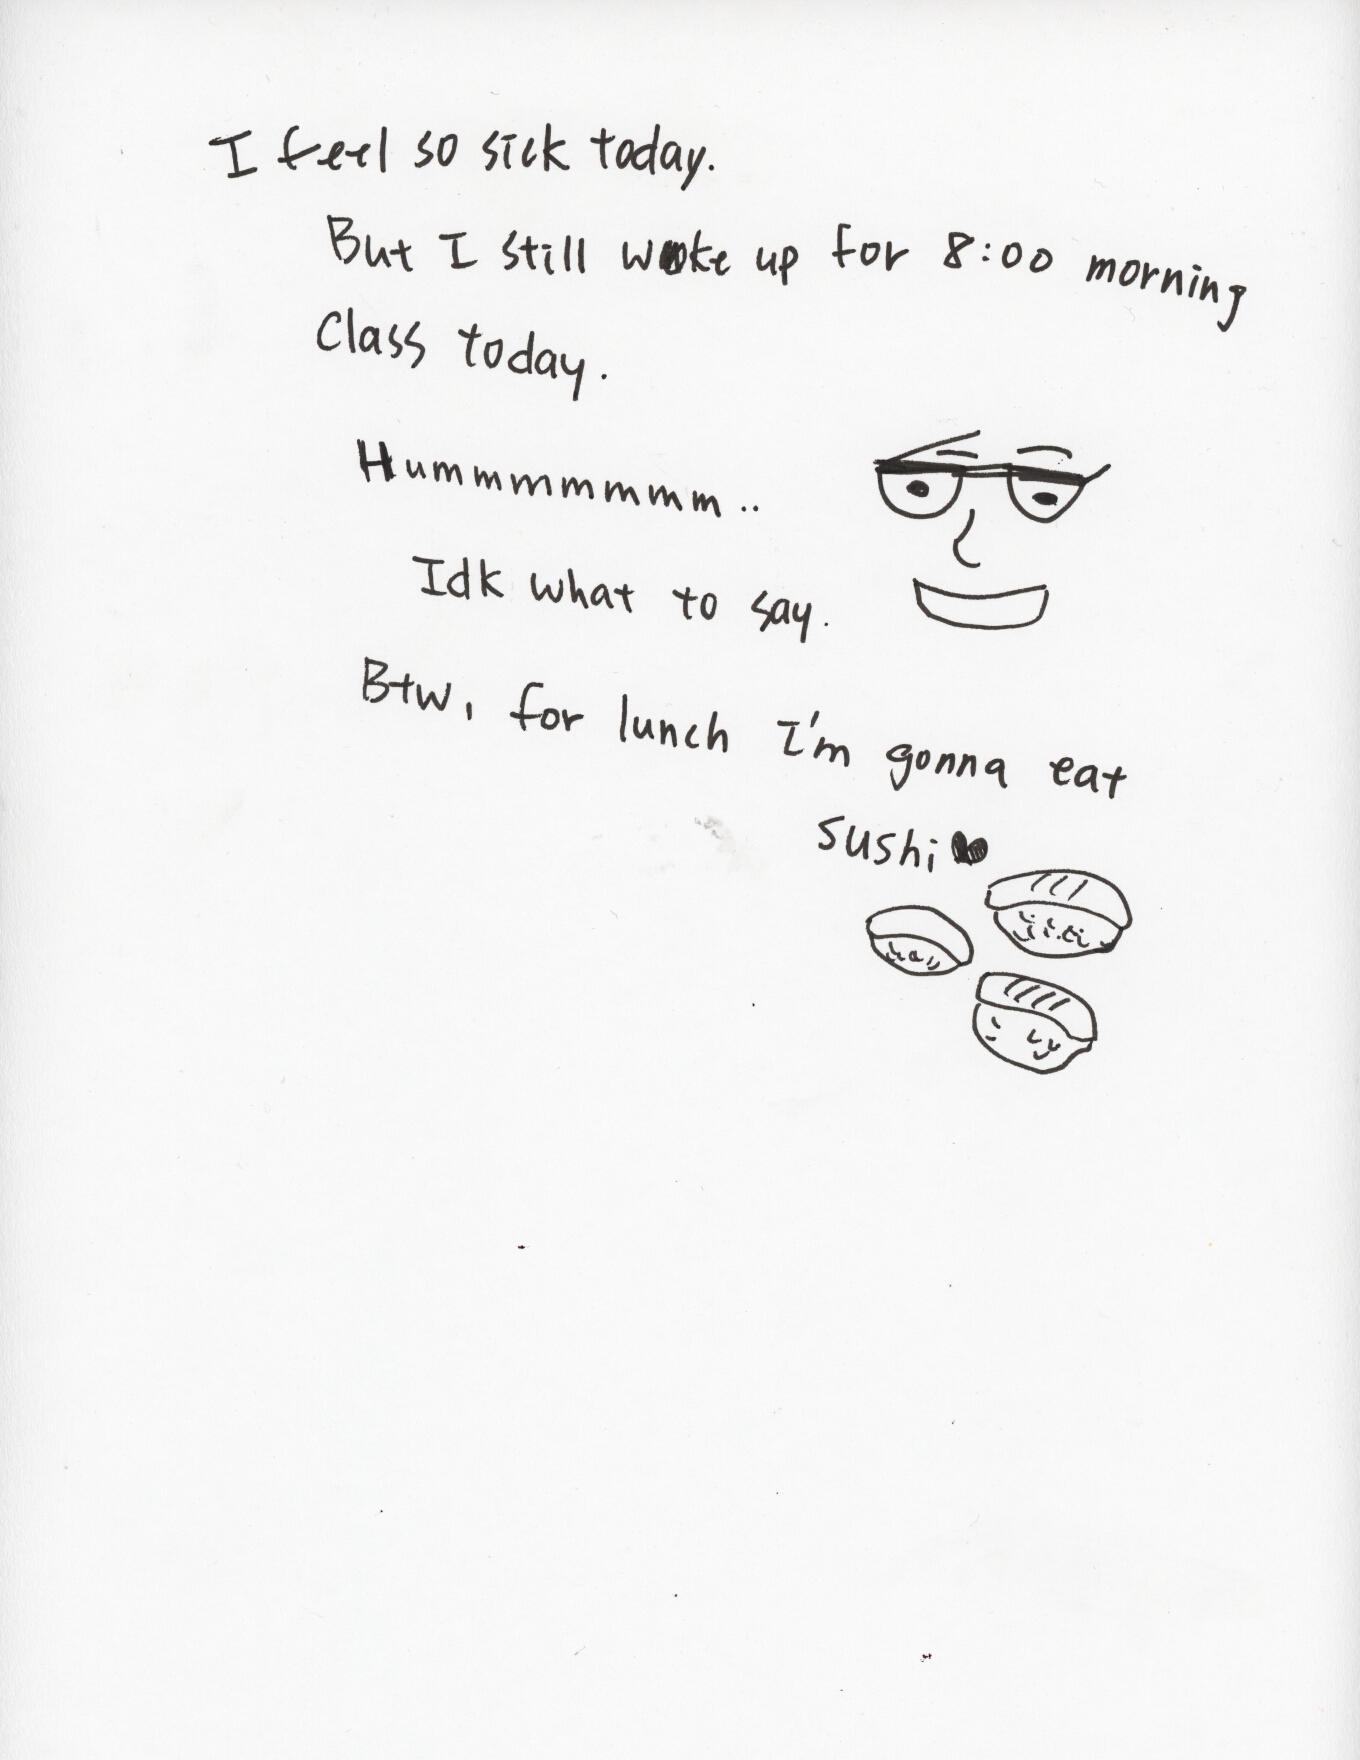 I feel so sick today.
But I still woke up for 8:00 morning
Class today.
Hummmmmmm..
Idk what to say.
Btw, for lunch I'm gonna eat
sushi♥